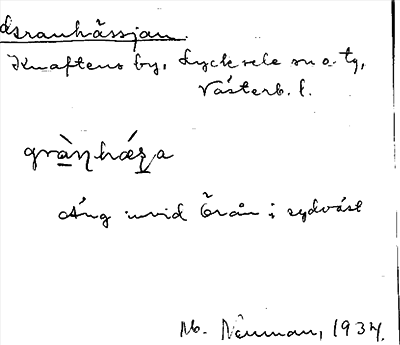 Granhässjan.
Knaftens by, Lycksele sn o. tg,
Västerb. l.
gràn̥hǽʂa
Äng invid Örån i sydväst
M. Näuman, 1934.